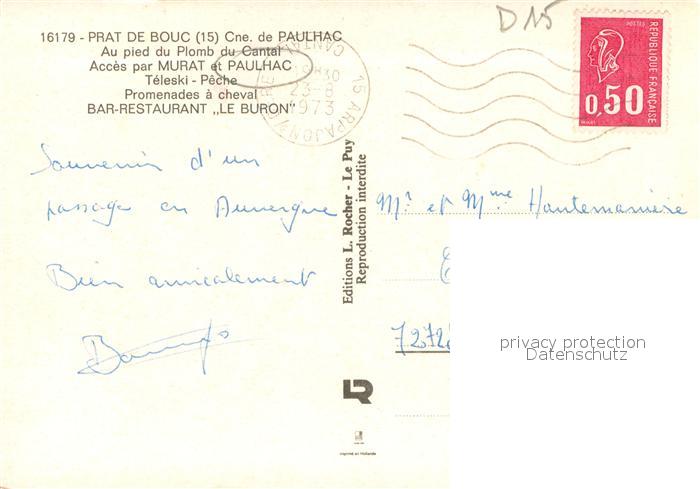 16179 - PRAT DE BOUC (15) Cne. de PAULHAC
Au pied du Plomb du Cantal
Accès par MURAT et PAULHAC
Téleski - Pêche
Promenades à cheval
BAR-RESTAURANT „LE BURON"
D15
15 ARPAJON
CANTAL
23-8
1973
POSTES
REPUBLIQUE FRANÇAISE
0,50
Souvenir d'un
passage en Auvergne
Bien amicalement
Editions L. Rocher - Le Puy
Reproduction interdite
Mr et Mme Hautemanière
7272
privacy protection
Datenschutz
LR
Imprimé en Hollande